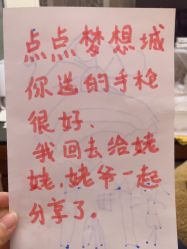 点点梦想城
你送的手枪
很好、
我回去给姥
姥、姥爷一起
分享了。